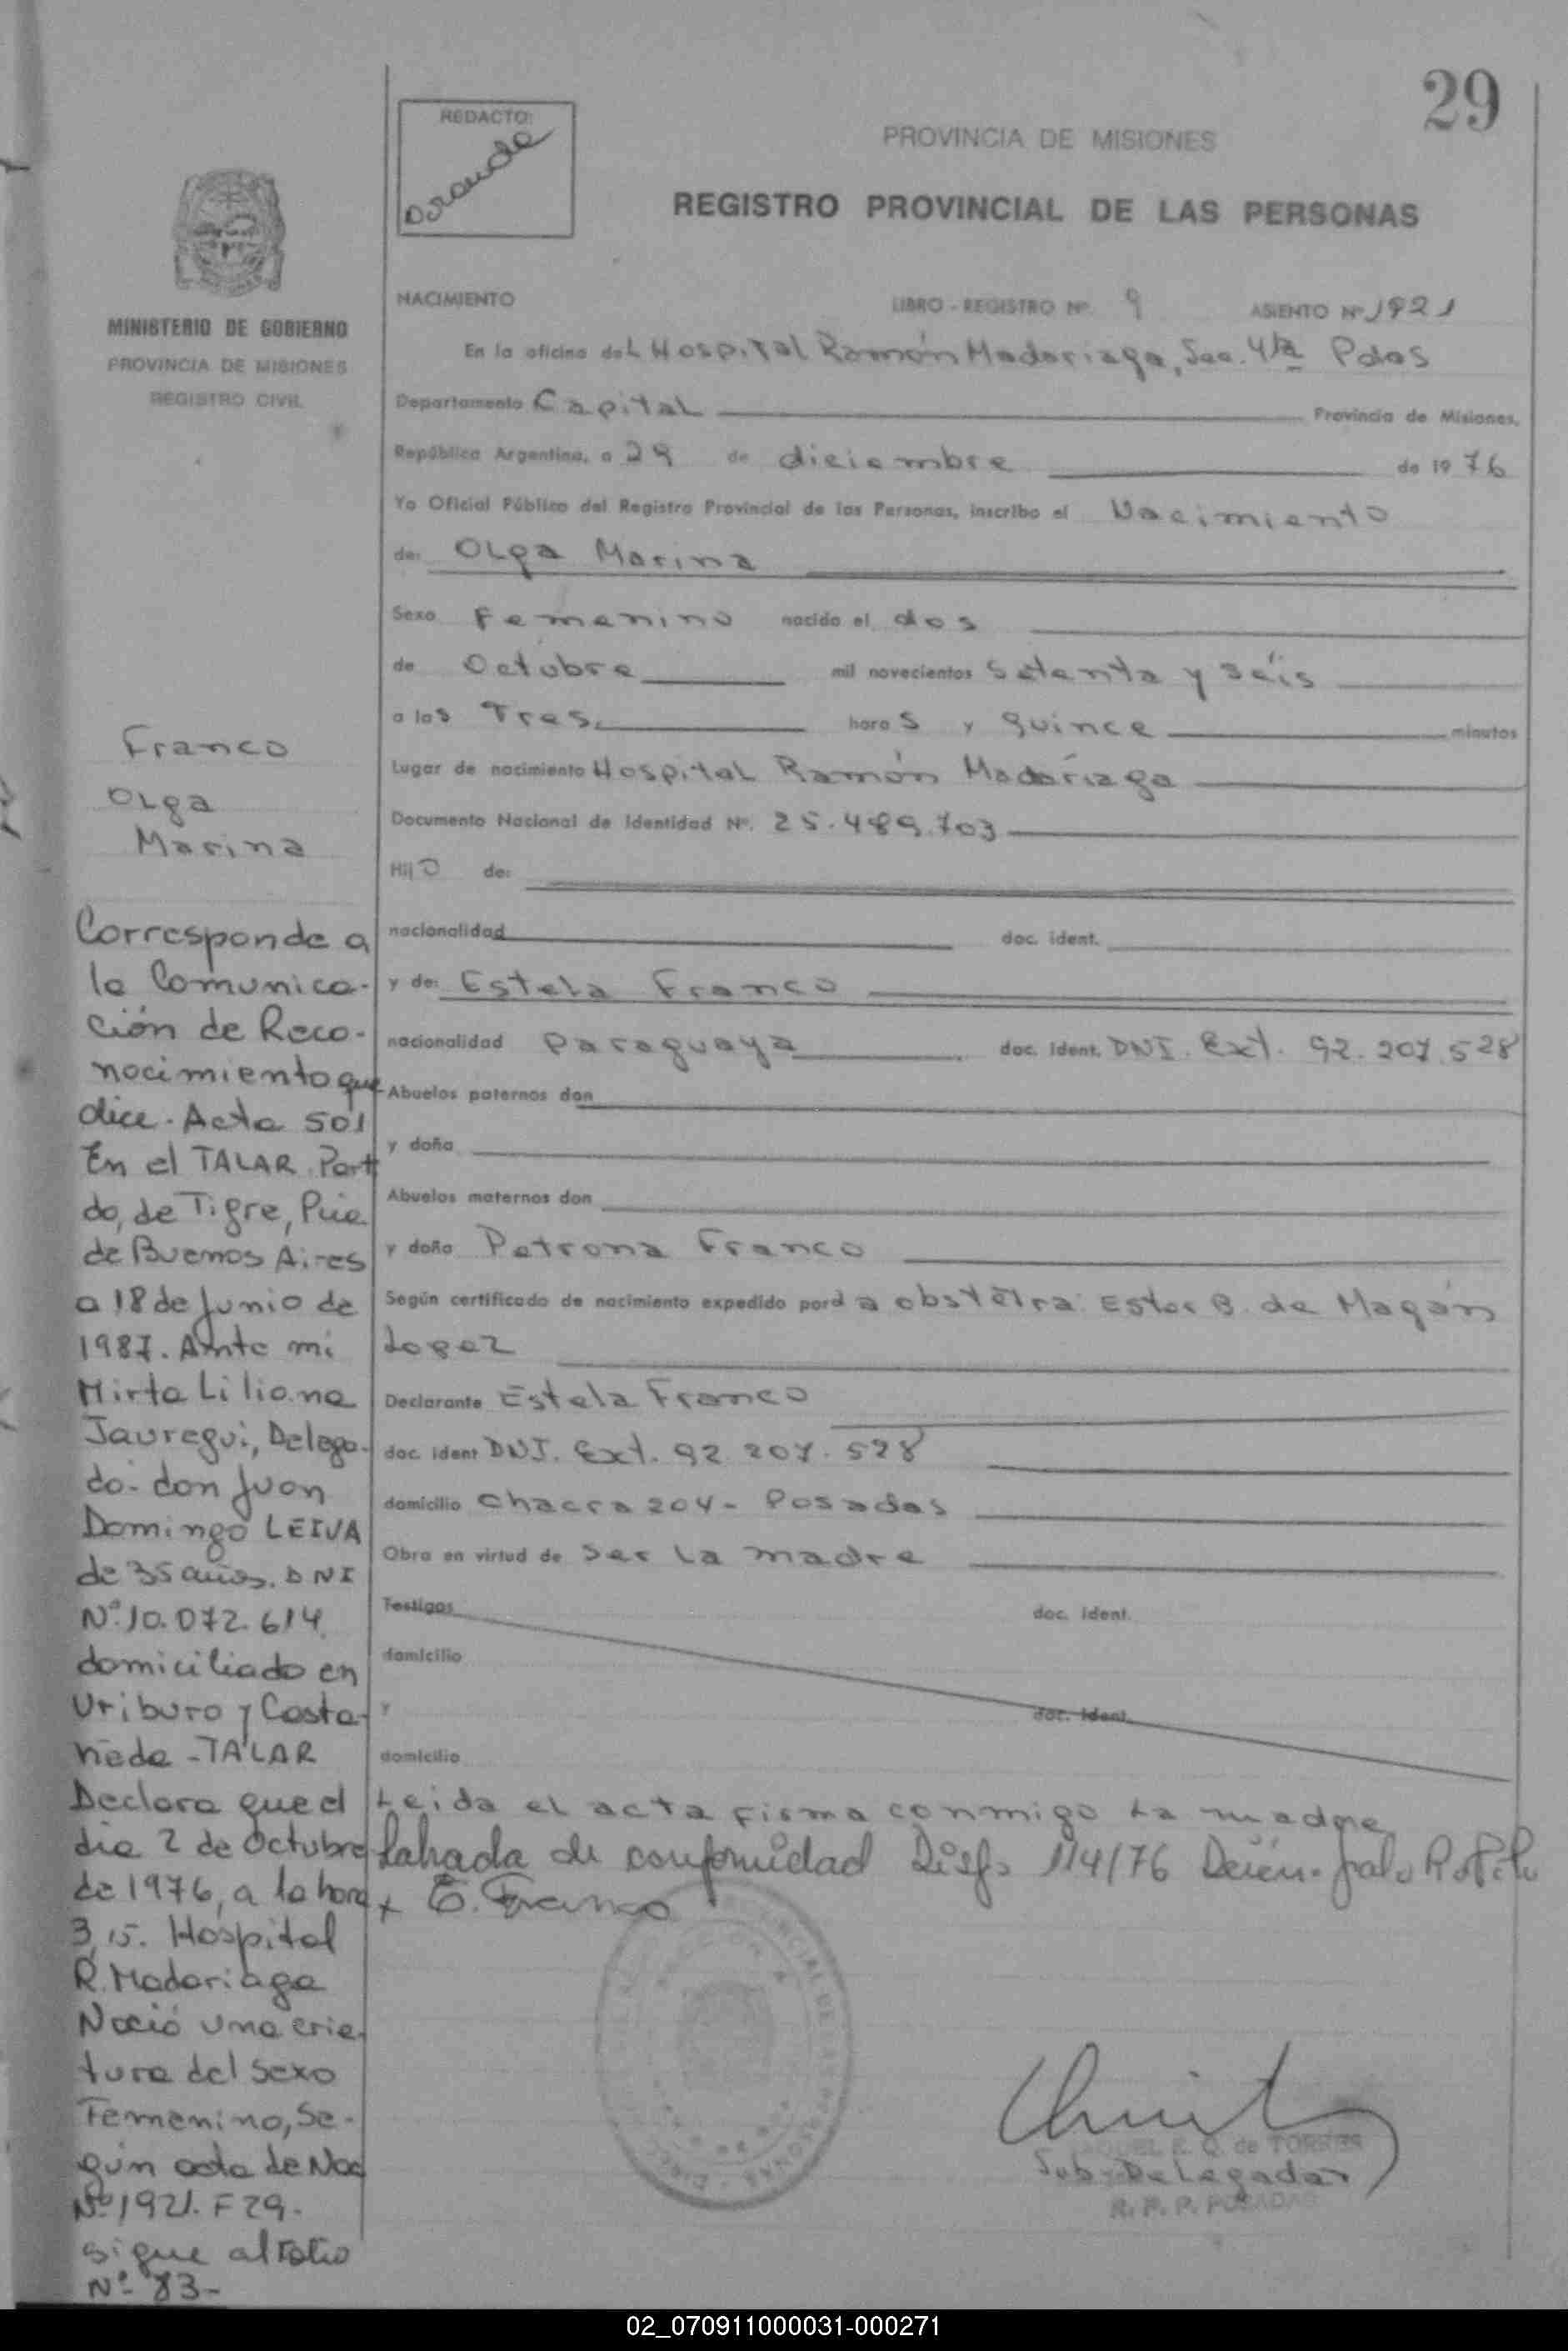 29
REDACTO:
PROVINCIA DE MISIONES
REGISTRO PROVINCIAL DE LAS PERSONAS
MINISTERIO DE GOBIERNO
PROVINCIA DE MISIONES
REGISTRO CIVIL
NACIMIENTO LIBRO - REGISTRO Nº 9 ASIENTO Nº 1921
En la oficina del Hospital Ramón Madariaga, Sec. 4ta Pdas
Departamento Capital Provincia de Misiones,
República Argentina, a 29 de diciembre de 1976
Yo Oficial Público del Registro Provincial de las Personas, inscribo el Nacimiento
de: Olga Marina
Sexo Femenino nacido el dos
de Octubre mil novecientos setenta y séis
a las Tres horas y quince minutos
Lugar de nacimiento Hospital Ramón Madariaga
Documento Nacional de Identidad Nº. 25.489.703
Hijo de:
nacionalidad doc. ident.
y de: Estela Franco
nacionalidad Paraguaya doc. ident. DNI. Ext. 92.207.528
Abuelos paternos don
y doña
Abuelos maternos don
y doña Petrona Franco
Según certificado de nacimiento expedido por la obstétra: Ester B. de Magán
Lopez
Declarante Estela Franco
doc. ident DNI. Ext. 92.207.528
domicilio Chacra 204 - Posadas
Obra en virtud de ser la madre
Testigos doc. ident.
domicilio
y doc. ident.
domicilio
Leida el acta firma conmigo la madre
Labrada de conformidad Disp. 114/76
x E. Franco
E. Q. de TORRES
Sub-Delegada
R. P. P. POSADAS
Franco
Olga
Marina
Corresponde a
la Comunica-
ción de Reco-
nocimiento que
dice - Acta 501
En el TALAR Parti
do, de Tigre, Pcia
de Buenos Aires
a 18 de Junio de
1987. Ante mi
Mirta Liliana
Jauregui, Delega-
do - don Juan
Domingo LEIVA
de 35 años. DNI
Nº 10.072.614
domiciliado en
Uriburo y Casta-
ñeda - TALAR
Declara que el
dia 2 de Octubre
de 1976, a la hora
3,15. Hospital
R. Madariaga
Nació una cria-
tura del sexo
Femenino, Se-
gún acta de Nac
Nº 1921. F 29.
sigue al Folio
Nº 83-
02_070911000031-000271